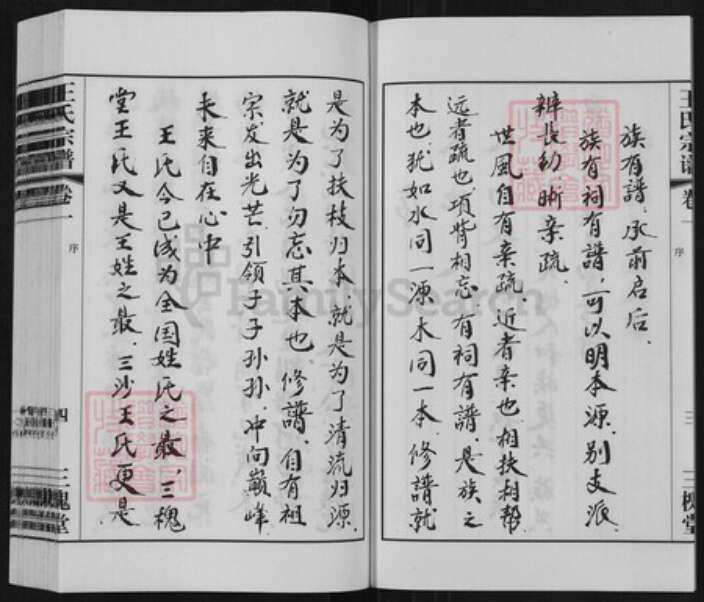 王氏宗谱
卷一
序
三
三槐堂
族有譜、承前启后、
族有祠有譜、可以明本源、别支派、
辨長幼晰亲疏、
世風自有亲疏、近者亲也、相扶相帮、
远者疏也、项背相忘、有祠有譜、是族之
本也、犹如水同一源、木同一本、修譜就
是为了扶枝归本、就是为了清流归源、
就是为了勿忘其本也、修譜、自有祖
宗发出光芒、引领子子孙孙、冲向巅峰、
未来自在心中
王氏今已成为全国姓氏之最、三槐
堂王氏又是王姓之最、三沙王氏更是
王氏宗譜
卷一
序
四
三槐堂
FamilySearch